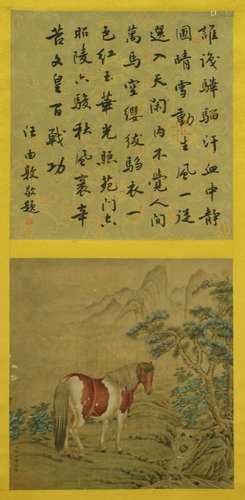 誰識驊騮汗血中靜
圖晴雪動生風一從
選入天閑內不覺人間
萬馬空 衣一
色紅玉華光照苑門
昭陵六駿秋風裏辛
苦文皇百戰功
汪由敦敬題